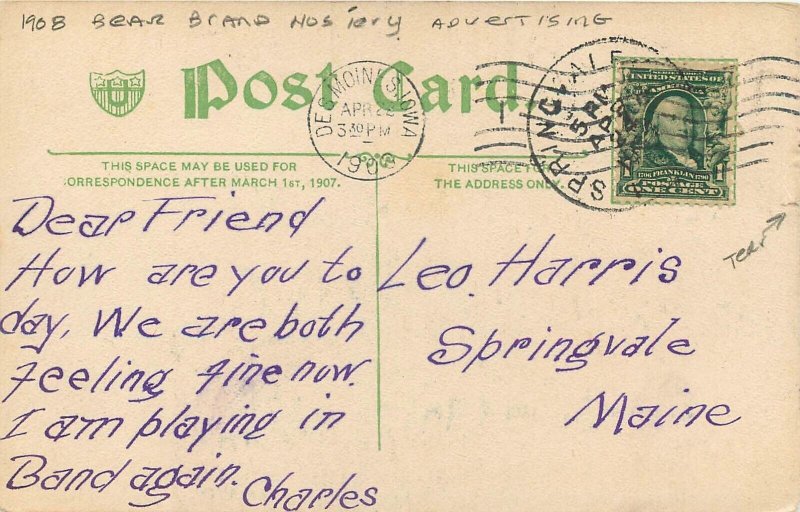 1908 BEAR BRAND HOSIERY ADVERTISING
Post Card.
DES MOINES, IOWA
APR 22
3 30 PM
190
SPRINGVALE
5 PM
SERIES 1902
UNITED STATES OF
AMERICA
1706 FRANKLIN 1790
POSTAGE
ONE CENT
THIS SPACE MAY BE USED FOR
CORRESPONDENCE AFTER MARCH 1ST, 1907.
THIS SPACE
THE ADDRESS ONLY.
TEAR
Dear Friend
How are you to
day, We are both
feeling fine now.
I am playing in
Band again.
Charles
Leo. Harris
Springvale
Maine